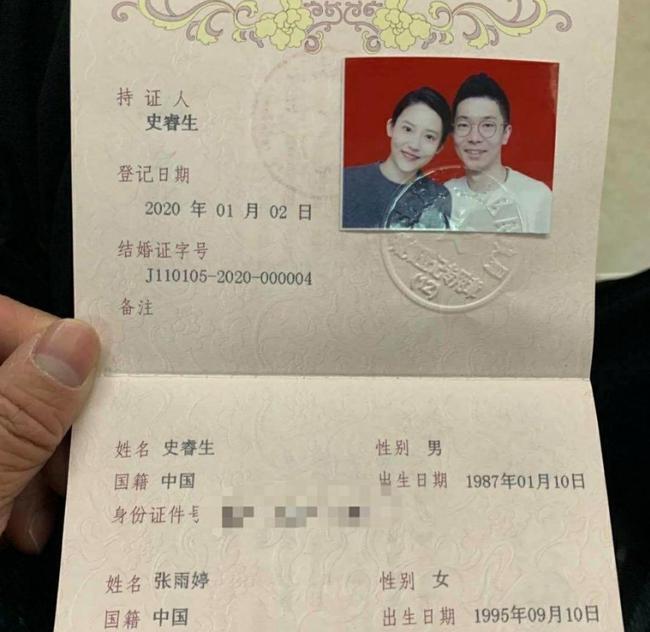 持证人
史睿生
登记日期
2020 年 01 月 02 日
结婚证字号
J110105-2020-000004
备注
姓名 史睿生 性别 男
国籍 中国 出生日期 1987年01月10日
身份证件号
姓名 张雨婷 性别 女
国籍 中国 出生日期 1995年09月10日